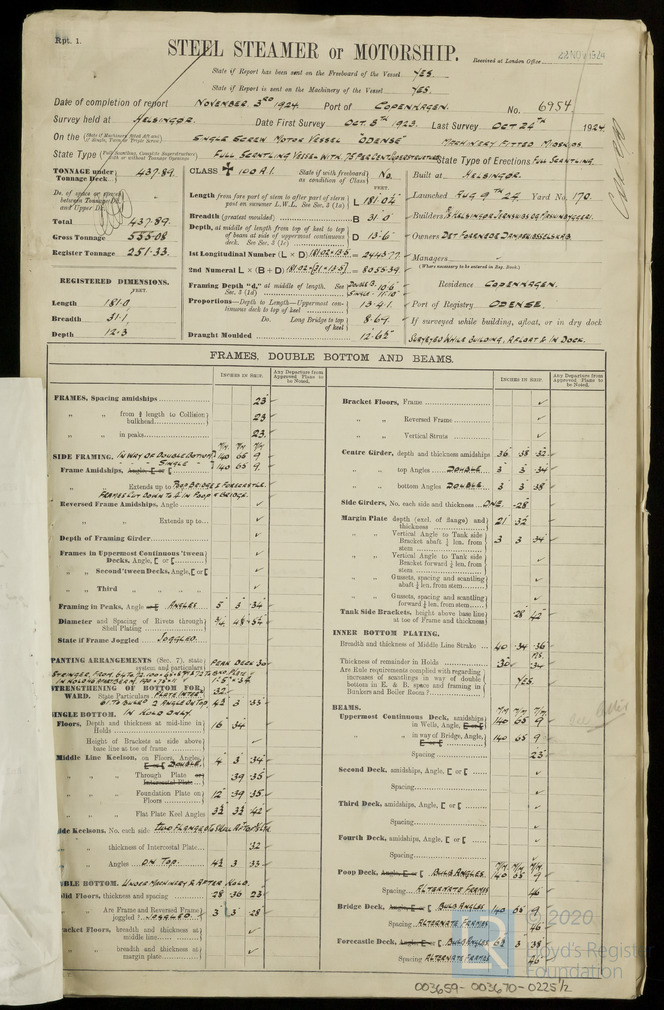 Rpt. 1.
STEEL STEAMER or MOTORSHIP.
Received at London Office
State if Report has been sent on the Freeboard of the Vessel YES.
State if Report is sent on the Machinery of the Vessel YES.
Date of completion of report NOVEMBER 3RD 1924. Port of COPENHAGEN. No. 6954
Survey held at HELSINGÖR. Date First Survey OCT. 8TH 1923. Last Survey OCT 24TH 1924
On the SINGLE SCREW MOTOR VESSEL "ODENSE" MACHINERY FITTED MIDSHIPS.
State Type FULL SCANTLING VESSEL WITH 75 PERCENT SUPERSTRUCTURES State Type of Erections FULL SCANTLING.
TONNAGE under Tonnage Deck 437.89.
Total 437.89.
Gross Tonnage 555.08
Register Tonnage 251.33.
REGISTERED DIMENSIONS.
FEET.
Length 181.0
Breadth 31.1
Depth 12.3
CLASS ✠ 100 A.1. State if with freeboard as condition of Class No.
FEET.
Length from fore part of stem to after part of stern post on summer L.W.L. See Sec. 3 (1a) L 181.02
Breadth (greatest moulded) B 31.0
Depth, at middle of length from top of keel to top of beam at side of uppermost continuous deck. See Sec. 3 (1c) D 13.5
1st Longitudinal Number (L × D) 181.02×13.5 = 2443.77
2nd Numeral L × (B + D) 181.02×(31+13.5) = 8055.39
Framing Depth "d," at middle of length. See Sec. 3 (1d) DOUBLE B. 10.6 SINGLE. 11.10
Proportions—Depth to Length—Uppermost continuous deck to top of keel 13.41
Do. Long Bridge to top of keel 8.64
Draught Moulded 12.6½
Built at HELSINGÖR.
Launched AUG 9TH 24. Yard No. 170.
Builders HELSINGÖR JERNSKIBS & MASKINBYGGERI.
Owners DET FORENEDE DAMPSKIBSSELSKAB.
Managers
(Where necessary to be entered in Reg. Book.)
Residence COPENHAGEN.
Port of Registry ODENSE.
If surveyed while building, afloat, or in dry dock
SURVEYED WHILE BUILDING, AFLOAT & IN DOCK.
FRAMES, DOUBLE BOTTOM AND BEAMS.
INCHES IN SHIP. Any Departure from Approved Plans to be Noted.
FRAMES, Spacing amidships 23
" " from ⅕ length to Collision bulkhead 23
" " in peaks 23.
SIDE FRAMING. IN WAY OF DOUBLE BOTTOM 140 65 9
Frame Amidships, Angle, SINGLE 140 65 9.
" " Extends up to POOP BRIDGE & FORECASTLE.
FRAMES CUT DOWN TO IN POOP & BRIDGE.
Reversed Frame Amidships, Angle
" " Extends up to
Depth of Framing Girder
Frames in Uppermost Continuous 'tween Decks, Angle, [ or [
" " Second 'tween Decks, Angle, [ or [
" " Third " "
Framing in Peaks, Angle ANGLES 5 3 .34
Diameter and Spacing of Rivets through Shell Plating
State if Frame Joggled JOGGLED.
PANTING ARRANGEMENTS (Sec. 7), state system and particulars PEAK DECK 30
STRENGTHENING OF BOTTOM FORWARD. State Particulars
SINGLE BOTTOM. IN HOLD ONLY.
Floors, Depth and thickness at mid-line in Holds 16 .34
Height of Brackets at side above base line at toe of frame
Middle Line Keelson, on Floors, Angles, DOUBLE. 4 3 .34
" " Through Plate or Intercostal Plate .39 .35
" " Foundation Plate on Floors 12 .39 .35
" " Flat Plate Keel Angles 3½ 3½ .42
Side Keelsons. No. each side
" " thickness of Intercostal Plate .32
" " Angles ON TOP. 4½ 3 .33
DOUBLE BOTTOM. UNDER MACHINERY & AFTER HOLD.
Solid Floors, thickness and spacing .28 .36 23
" " Are Frame and Reversed Frame joggled? JOGGLED. 3 3 .28
Bracket Floors, breadth and thickness at middle line
" " breadth and thickness at margin plate
INCHES IN SHIP Any Departure from Approved Plans to be Noted.
Bracket Floors, Frame
" " Reversed Frame
" " Vertical Struts
Centre Girder, depth and thickness amidships 36 .38 .32
" " top Angles DOUBLE 3 3 .34
" " bottom Angles DOUBLE 3 3 .38
Side Girders, No. each side and thickness ONE. .28
Margin Plate depth (excl. of flange) and thickness 21 .32
" " Vertical Angle to Tank side Bracket abaft ¼ len. from stem 3 3 .34
" " Vertical Angle to Tank side Bracket forward ¼ len. from stem
" " Gussets, spacing and scantling abaft ¼ len. from stem
" " Gussets, spacing and scantling forward ¼ len. from stem
Tank Side Brackets, height above base line at toe of Frame and thickness .28 42
INNER BOTTOM PLATING.
Breadth and thickness of Middle Line Strake 40 .34 .36
Thickness of remainder in Holds .30 .34
Are Rule requirements complied with regarding increases of scantlings in way of double bottom in E. & B. space and framing in Bunkers and Boiler Room? YES.
BEAMS.
Uppermost Continuous Deck, amidships in Wells, Angle 140 65 9
" " in way of Bridge, Angle, 140 65 9
Spacing 23
Second Deck, amidships, Angle, [ or [
Spacing
Third Deck, amidships, Angle, [ or [
Spacing
Fourth Deck, amidships, Angle, [ or [
Spacing
Poop Deck, BULB ANGLES. 140 65 9
Spacing ALTERNATE FRAMES 46
Bridge Deck, BULB ANGLES 140 65 9
Spacing ALTERNATE FRAMES 46
Forecastle Deck, BULB ANGLES 6½ 3 .38
Spacing ALTERNATE FRAMES 46
© 2020
Lloyd's Register
Foundation
003659-003670-0225 1/2